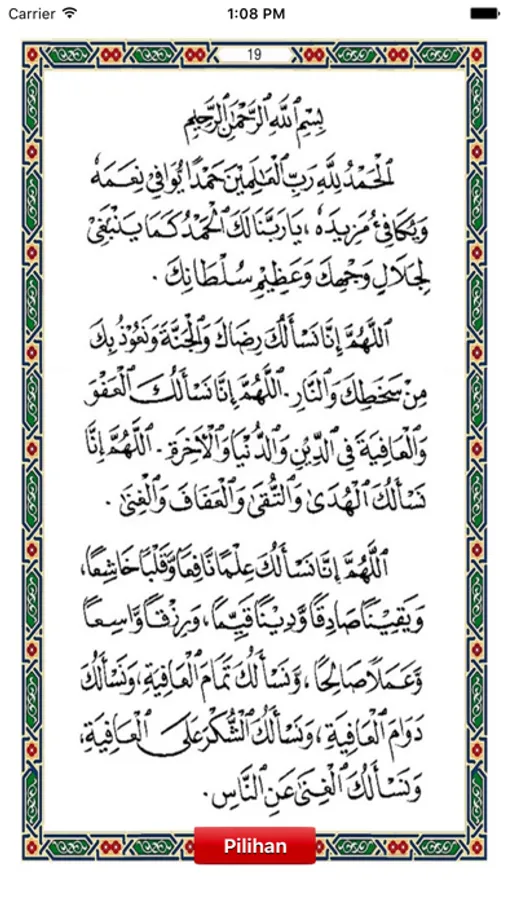 Carrier 1:08 PM
19
بِسْمِ ٱللَّهِ ٱلرَّحْمَٰنِ ٱلرَّحِيمِ
ٱلْحَمْدُ لِلَّهِ رَبِّ ٱلْعَالَمِيْنَ حَمْدًا يُوَافِيْ نِعَمَهُ
وَيُكَافِئُ مَزِيدَهُ ، يَا رَبَّنَا لَكَ ٱلْحَمْدُ كَمَا يَنْبَغِيْ
لِجَلَالِ وَجْهِكَ وَعَظِيْمِ سُلْطَانِكَ .
اَللَّهُمَّ إِنَّا نَسْأَلُكَ رِضَاكَ وَٱلْجَنَّةَ وَنَعُوْذُ بِكَ
مِنْ سَخَطِكَ وَٱلنَّارِ . اَللَّهُمَّ إِنَّا نَسْأَلُكَ ٱلْعَفْوَ
وَٱلْعَافِيَةَ فِي ٱلدِّيْنِ وَٱلدُّنْيَا وَٱلْآخِرَةِ . اَللَّهُمَّ إِنَّا
نَسْأَلُكَ ٱلْهُدَىٰ وَٱلتُّقَىٰ وَٱلْعَفَافَ وَٱلْغِنَىٰ .
اَللَّهُمَّ إِنَّا نَسْأَلُكَ عِلْمًا نَافِعًا وَّقَلْبًا خَاشِعًا،
وَيَقِيْنًا صَادِقًا وَّدِيْنًا قَيِّمًا، وَرِزْقًا وَّاسِعًا
وَّعَمَلًا صَالِحًا ، وَّنَسْأَلُكَ تَمَامَ ٱلْعَافِيَةِ، وَنَسْأَلُكَ
دَوَامَ ٱلْعَافِيَةِ ، وَنَسْأَلُكَ ٱلشُّكْرَ عَلَى ٱلْعَافِيَةِ،
وَنَسْأَلُكَ ٱلْغِنَىٰ عَنِ ٱلنَّاسِ .
Pilihan